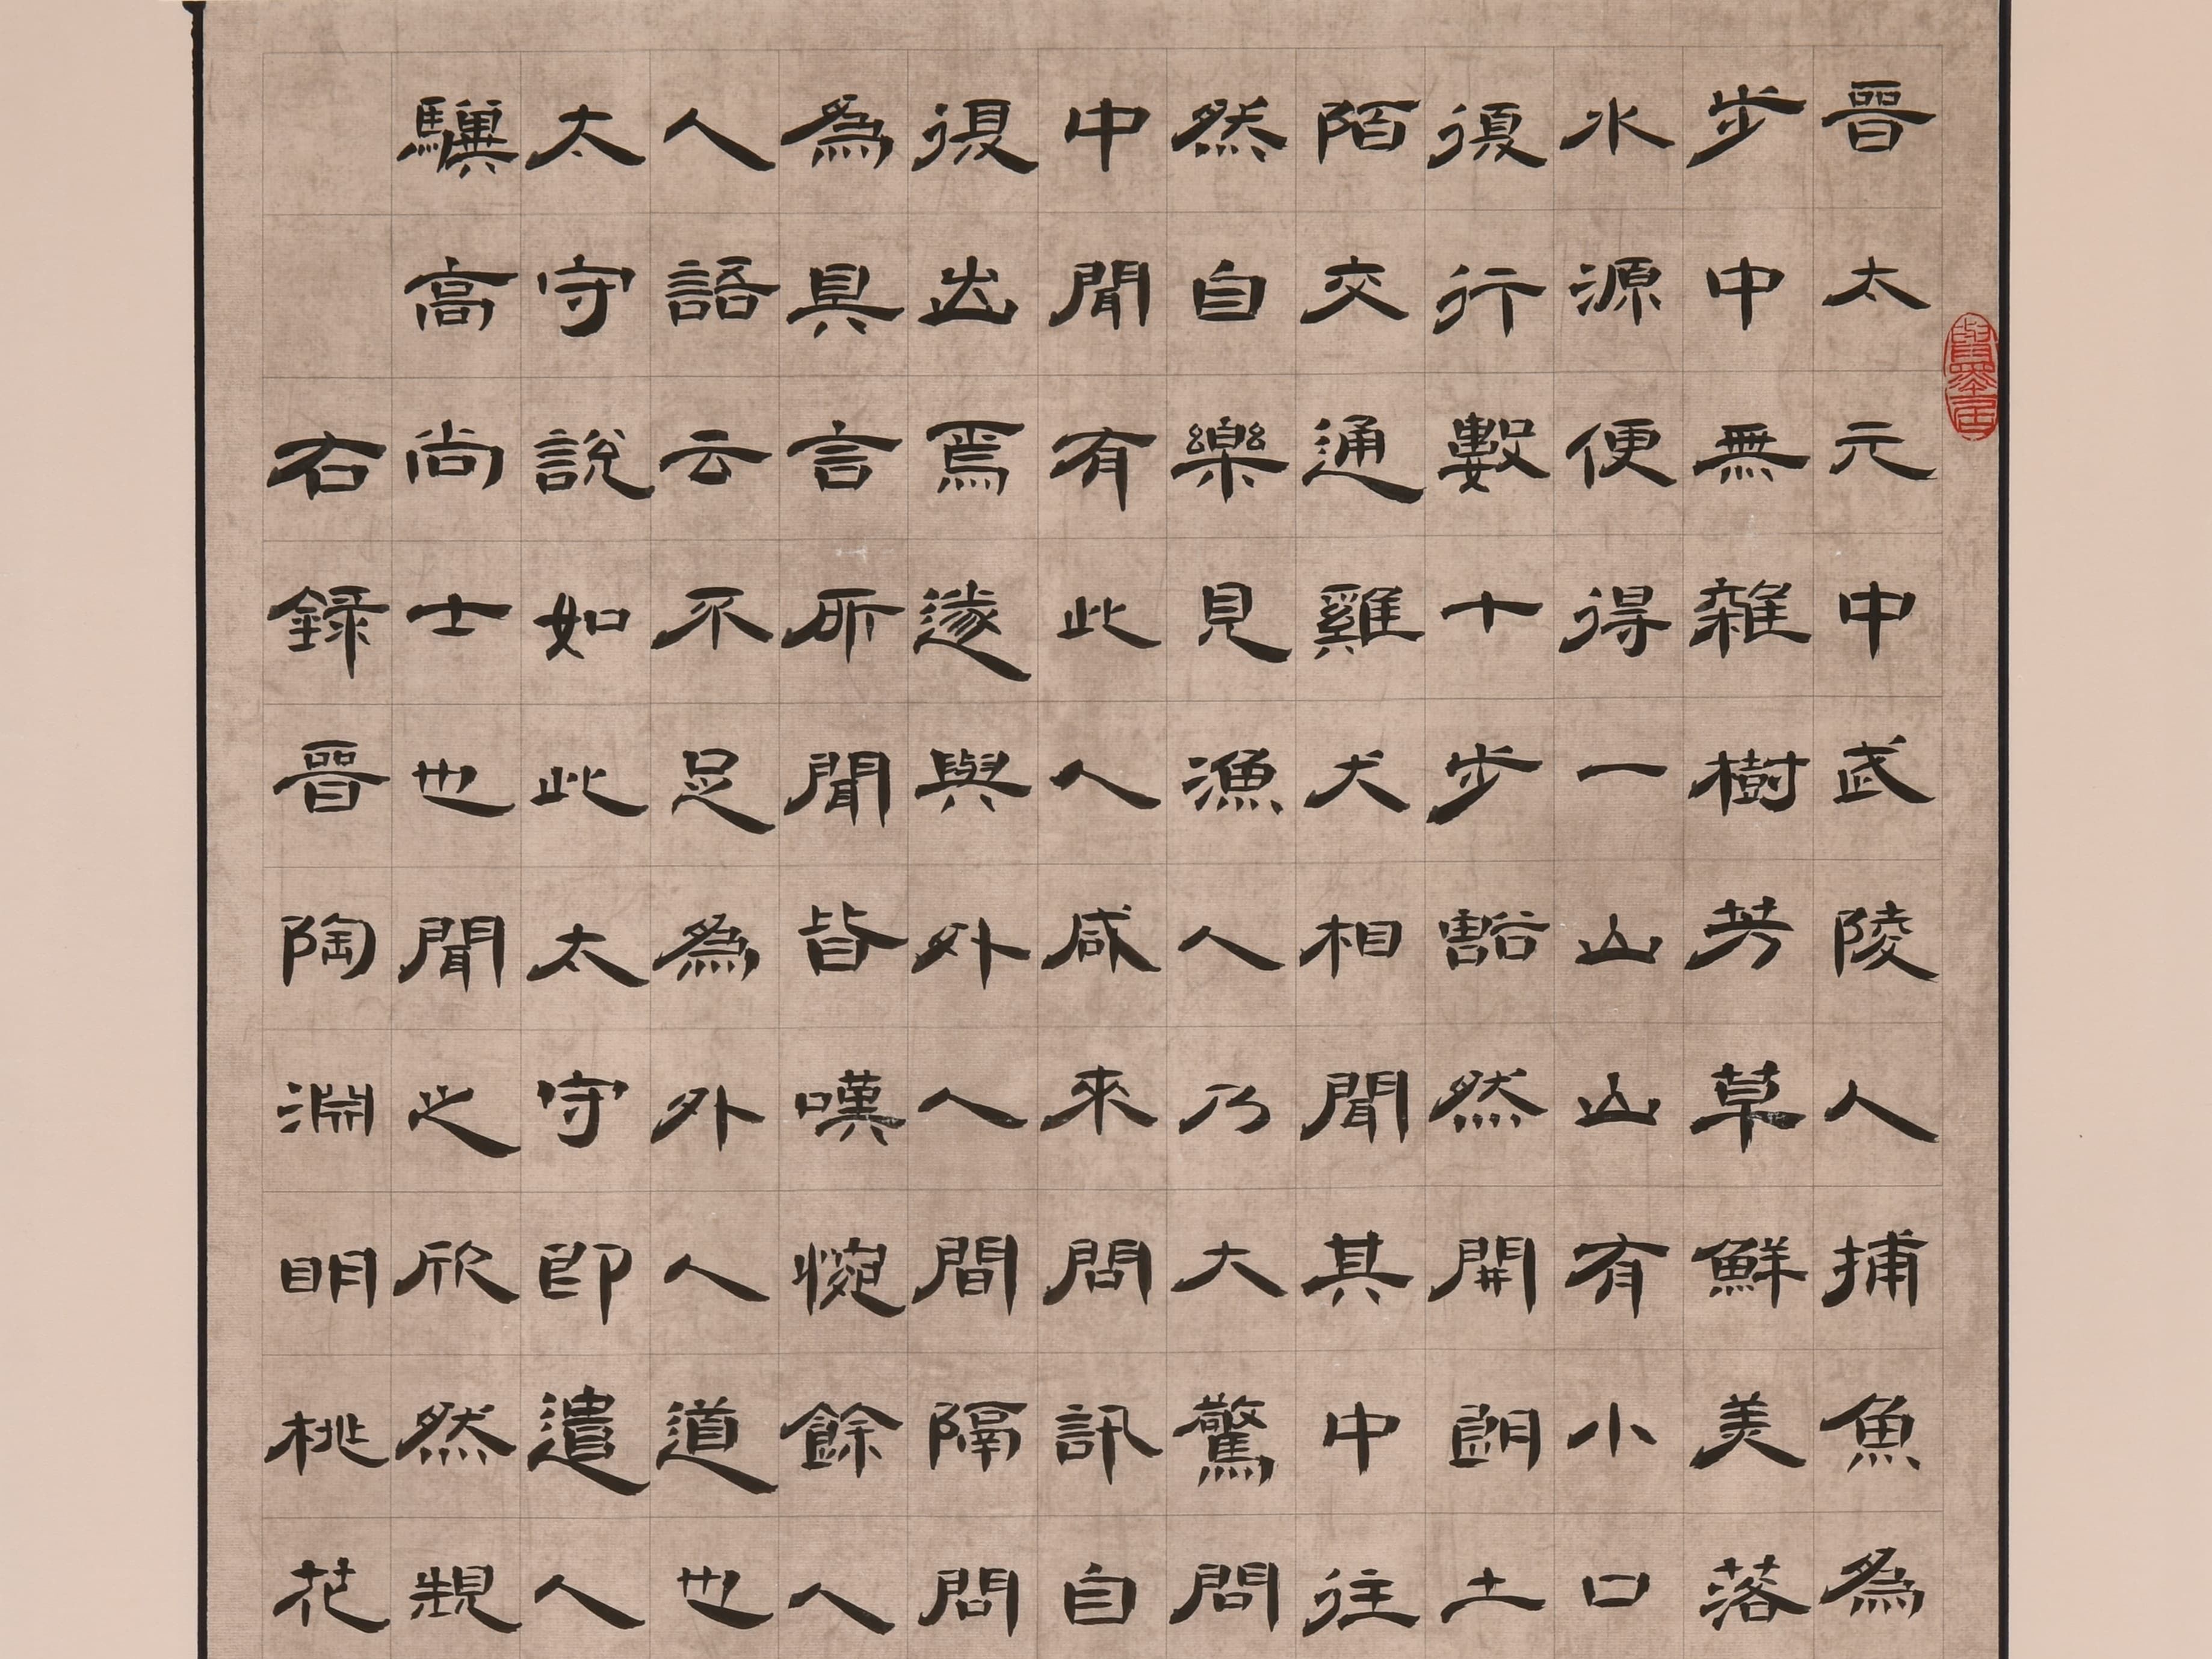 晉太元中武陵人捕魚為
步中無雜樹芳草鮮美落
水源便得一山山有小口
復行數十步豁然開朗土
陌交通雞犬相聞其中往
然自樂見漁人乃大驚問
中聞有此人咸來問訊自
復出焉遂與外人間隔問
為具言所聞皆嘆惋餘人
人語云不足為外人道也
太守說如此太守即遣人
驥高尚士也聞之欣然規
右錄晉陶淵明桃花